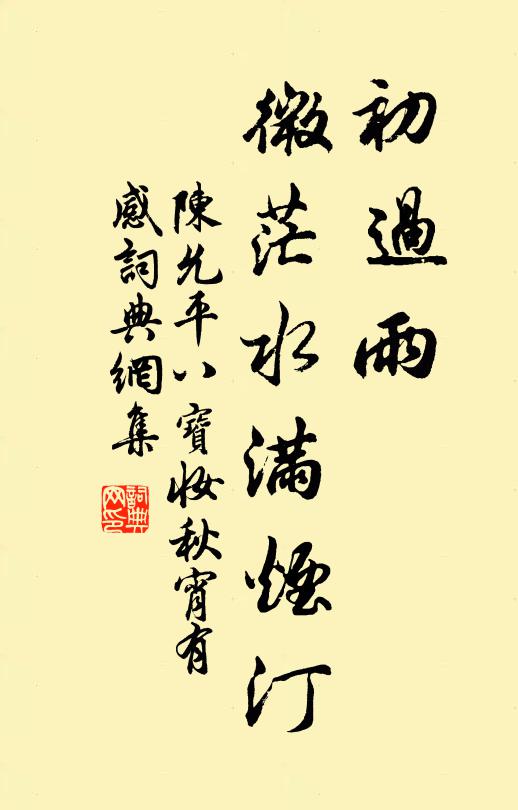 初過雨
微茫水滿煙汀
陳允平八寶妝秋宵有
感詞典網集
詞典
网印